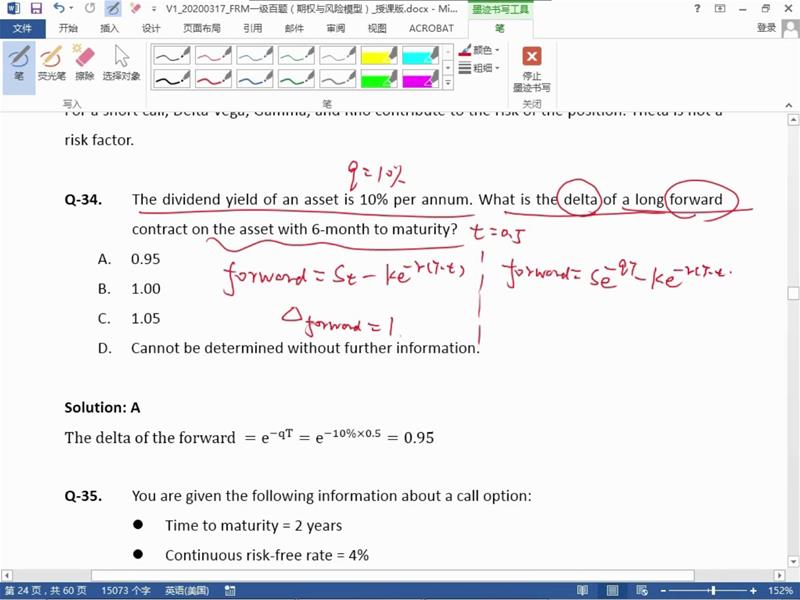 V1_20200317_FRM一级百题（期权与风险模型）_授课版.docx - Mi...
墨迹书写工具
文件
开始
插入
设计
页面布局
引用
邮件
审阅
视图
ACROBAT
笔
登录
笔
荧光笔
擦除
选择对象
颜色
粗细
停止
墨迹书写
写入
笔
关闭
For a short call, Delta Vega, Gamma, and Rho contribute to the risk of the position. Theta is not a
risk factor.
q=10%
Q-34. The dividend yield of an asset is 10% per annum. What is the delta of a long forward
contract on the asset with 6-month to maturity? t=0.5
A. 0.95
forward = St - Ke^-r(T-t)
forward = Se^-qT - Ke^-r(T-t.
B. 1.00
C. 1.05
Δforward = 1
D. Cannot be determined without further information.
Solution: A
The delta of the forward = e^−qT = e^−10%×0.5 = 0.95
Q-35. You are given the following information about a call option:
● Time to maturity = 2 years
● Continuous risk-free rate = 4%
第 24 页，共 60 页
15073 个字
英语(美国)
152%